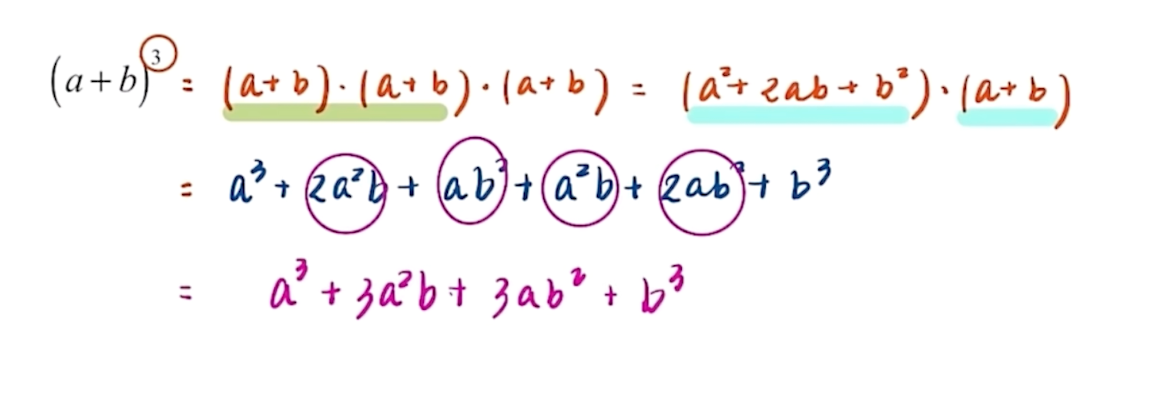 (a+b)³ = (a+b)·(a+b)·(a+b) = (a²+2ab+b²)·(a+b)
= a³+2a²b+ab²+a²b+2ab²+b³
= a³+3a²b+3ab²+b³